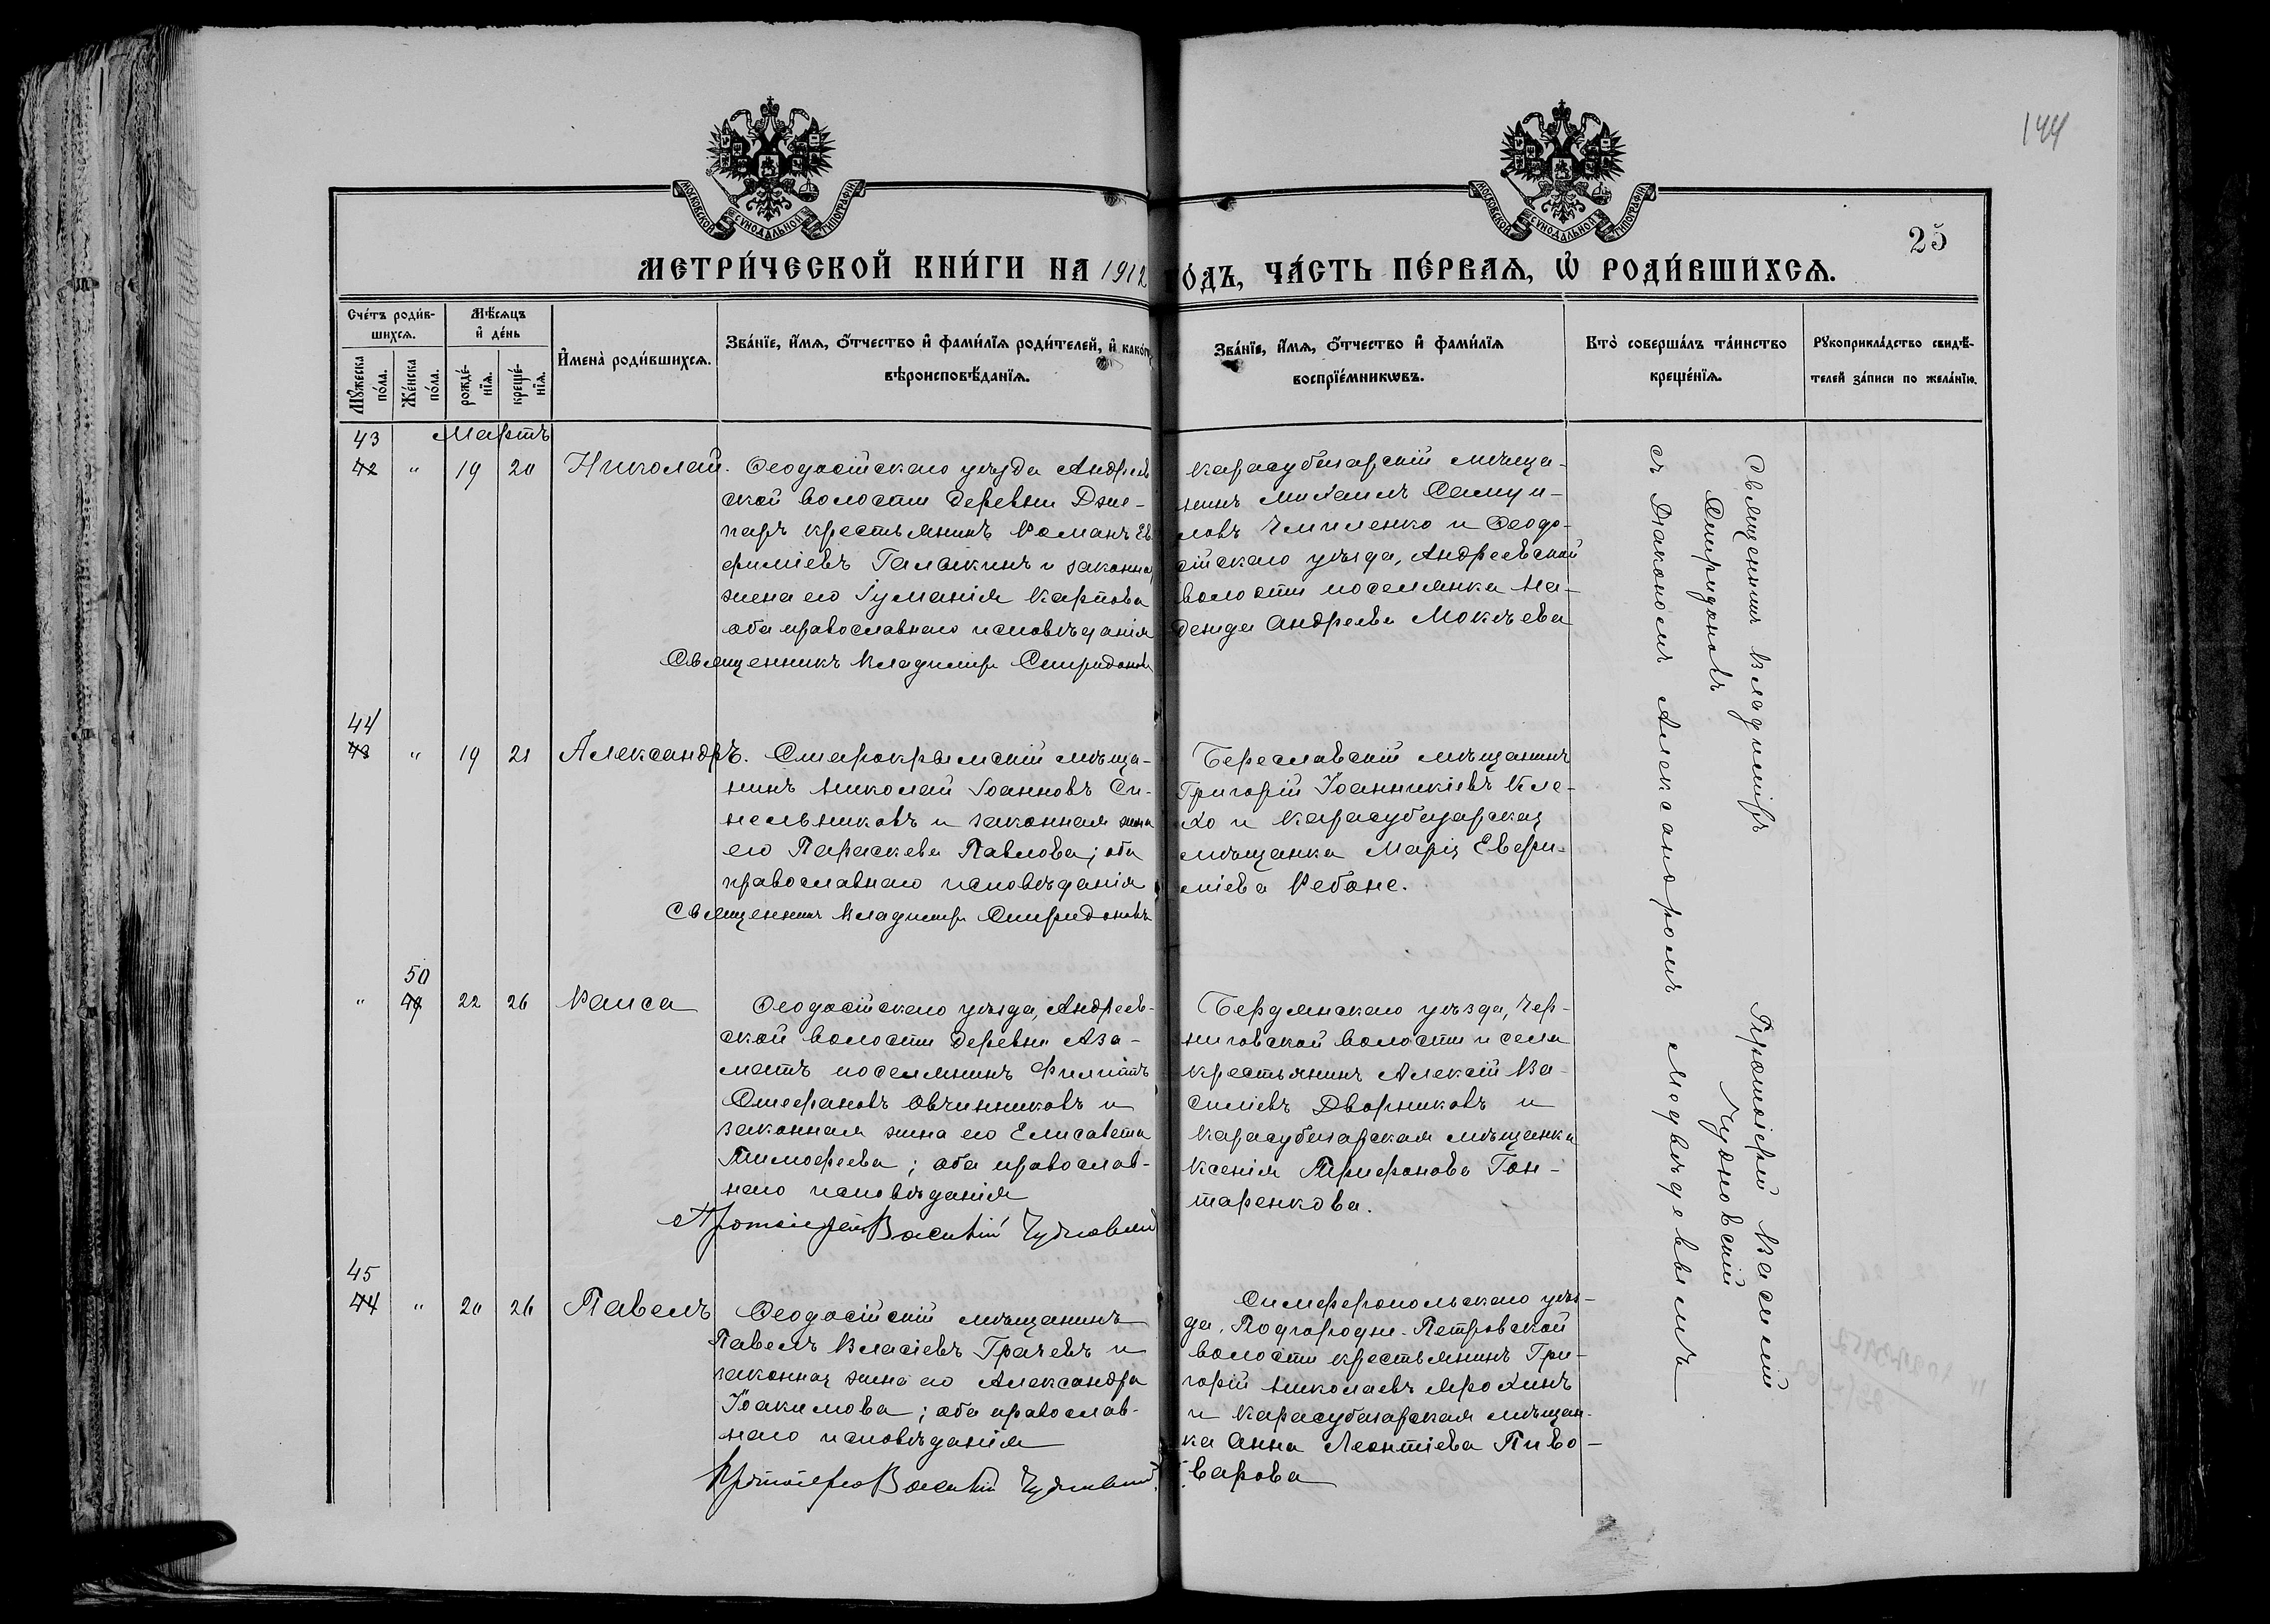 144
МОСКОВСКОЙ СѴНОДАЛЬНОЙ ТИПОГРАФІИ
МОСКОВСКОЙ СѴНОДАЛЬНОЙ ТИПОГРАФІИ
25
МЕТРИ́ЧЕСКОЙ КНИ́ГИ НА 1912 ГО́ДЪ, ЧА́СТЬ ПЕ́РВАЯ, Ѡ҆ РОДИ́ВШИХСЯ.
Сче́тъ роди́в-
шихся.
Мꙋ́жеска по́ла.
Же́нска по́ла.
Мѣ́сяцъ
и҆ де́нь
рожде́-
нїѧ.
креще́-
нїѧ.
И҆мена̀ роди́вшихся.
Зва́нїе, и҆́мя, ѻ҆́тчество и҆ фами́лїя роди́телей, и҆ како́гѡ
вѣроисповѣ́данїя.
Зва́нїе, и҆́мя, ѻ҆́тчество и҆ фами́лїя
воспрїе́мникѡвъ.
Кто̀ соверша́лъ та́инство
креще́нїя.
Рꙋкоприкла́дство свидѣ́-
телей за́писи по жела́нїю.
Мартъ
43
42 " 19 20 Николай.
Ѳеодосійскаго уѣзда Андреев
ской волости деревни Джи-
паръ крестьянинъ Романъ Ев
фиміевъ Галакинъ и законная
жена его Іуманія Карпова
оба православнаго исповѣданія
Священникъ Владимиръ Спиридоновъ
Карасубазарскій мѣща-
нинъ Михаилъ Самуи-
ловъ Чмиленко и Ѳеодо-
сійскаго уѣзда, Андреевской
волости поселянка На-
дежда Андреева Мокѣева
Священникъ Владиміръ
Спиридоновъ
съ Діакономъ Александромъ Медвѣдевымъ
44
43 " 19 21 Александръ.
Старокрымскій мѣща-
нинъ Николай Іоанновъ Си-
нельниковъ и законная жена
его Параскева Павлова; оба
православнаго исповѣданія
Священникъ Владимиръ Спиридоновъ
Береславскій мѣщанинъ
Григорій Іоанникіевъ Кле-
хо и Карасубазарская
мѣщанка Марія Евфи-
міева Ребоне.
50
" 49 22 26 Раиса
Ѳеодосійскаго уѣзда, Андреев-
ской волости деревни Аза-
матъ поселянинъ Филиппъ
Стефановъ Овчинниковъ и
законная жена его Елисавета
Тимофеева; оба православ-
наго исповѣданія
Протоіерей Василій Чудновскій
Бердянскаго уѣзда, Чер-
ниговской волости и села
крестьянинъ Алексій Ва-
силіевъ Дворниковъ и
Карасубазарская мѣщанка
Ксенія Трифонова Гон-
таренкова.
Протоіерей Василій
Чудновскій
45
44 " 20 26 Павелъ
Ѳеодосійскій мѣщанинъ
Павелъ Власіевъ Грачевъ и
законная жена его Александра
Іоакимова; оба православ-
наго исповѣданія
Протоіерей Василій Чудновскій
Симферопольскаго уѣз-
да, Подгородне-Петровской
волости крестьянинъ Гри-
горій Николаевъ Ярохинъ
и Карасубазарская мѣщан-
ка Анна Леонтіева Пиво-
варова